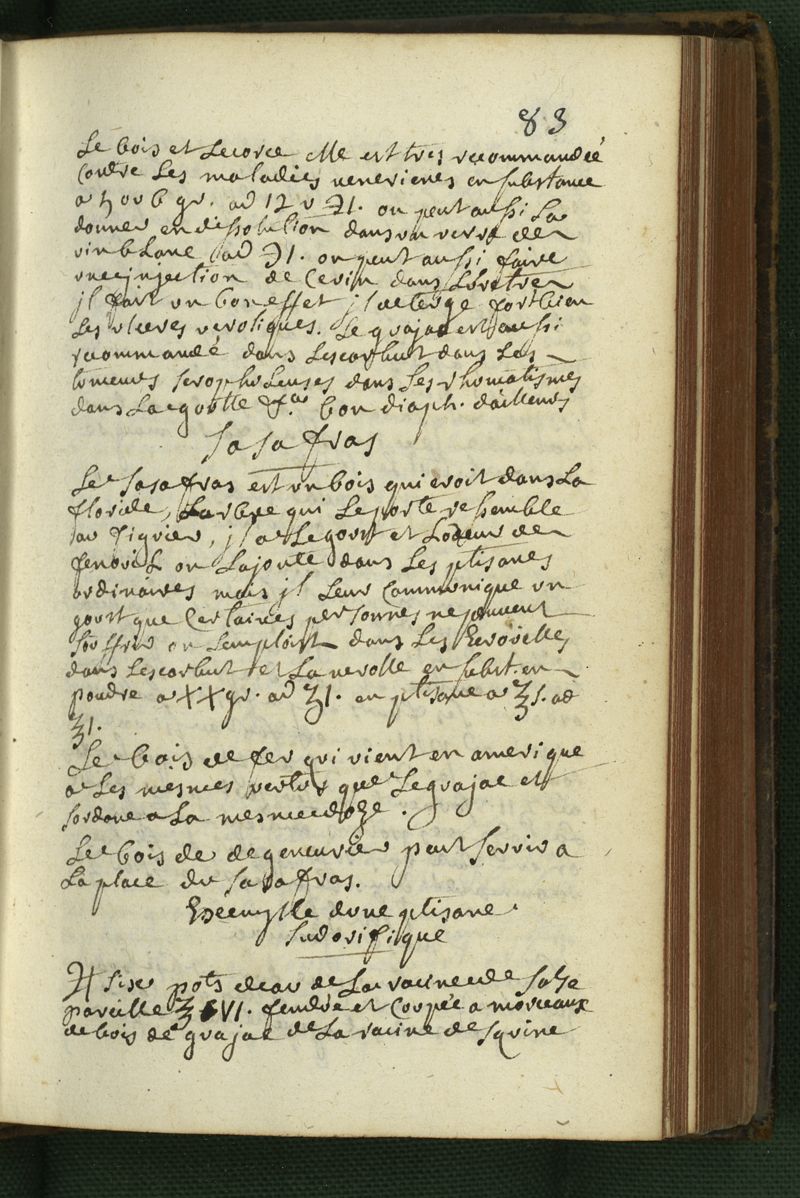 83
Le bois et Lecorce elle est tres recommandéé
Contre Les maladies venerienes en substance
a 5 ou 6 gr. ad 12 v ℈1. on peut aussi La
donner en dissolution dans un verre de
vin blanc ad ℈1. on peut aussi faire
une injection de Ce vin dans Luretre
jl fait un bon effet jl deterge fort bien
Les ulceres veroliques. Le guajac est aussi
recommandé dans Lescorbut dans Les
tomeurs scrophuleuses dans Les rhomatismes
dans La goutte bon diaph. dailleurs
Sasafras
Le Sasafras est un bois qui croit dans La
floride, Larbre qui Le porte ressemble
au figuier, jl a Le goust et Lodeur de
fenouil on Lajoute dans Les ptisanes
ordinaires mais jl Leur Communique un
goust que Certaines personnes ne peuvent
souffrir on Lemploist dans Les Ecrouelles
dans Lescorbut et La verolle en subst en
poudre a XX gr. ad ʒ1. en ptisane a ℥s. ad
℥1.
Le bois de fer qui vient en amerique
a Les mesmes vertus que Le guajac et
sordone a La mesme doze.
Le bois de de genevrier peut servir a
La place du Sasafras.
Exemplle dune ptisane
Sudorifique
♃ Six pots deau de La racine de Salze
pareille ℥ VI. fendue et Coupée a morceaux
de bois de guajac de La racine de squine